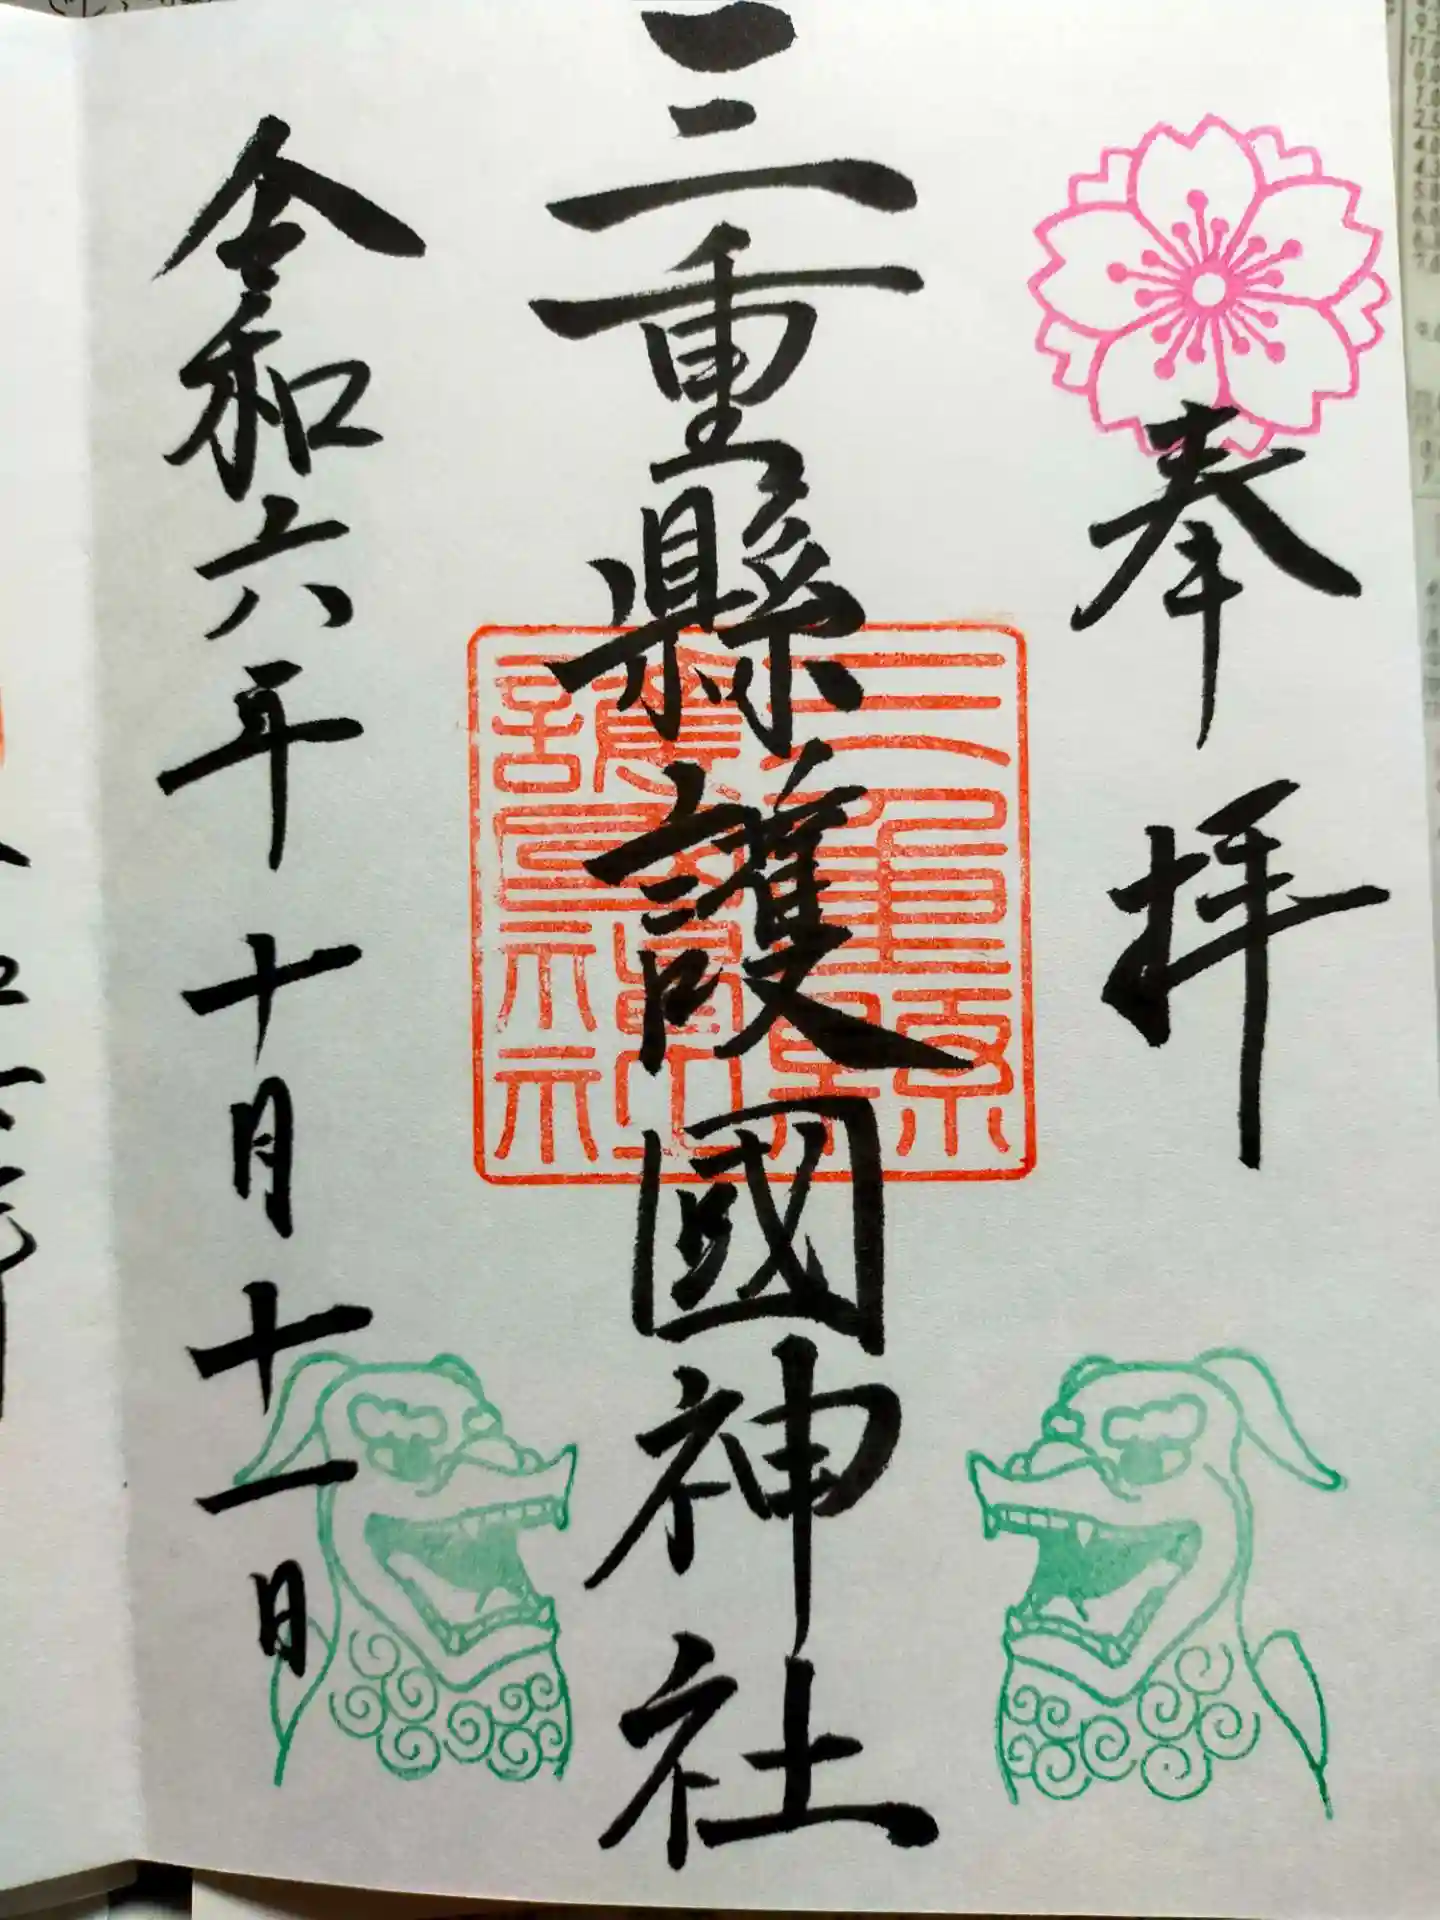 奉拝
三重縣護國神社
三重県
護國神社
令和六年十月十一日